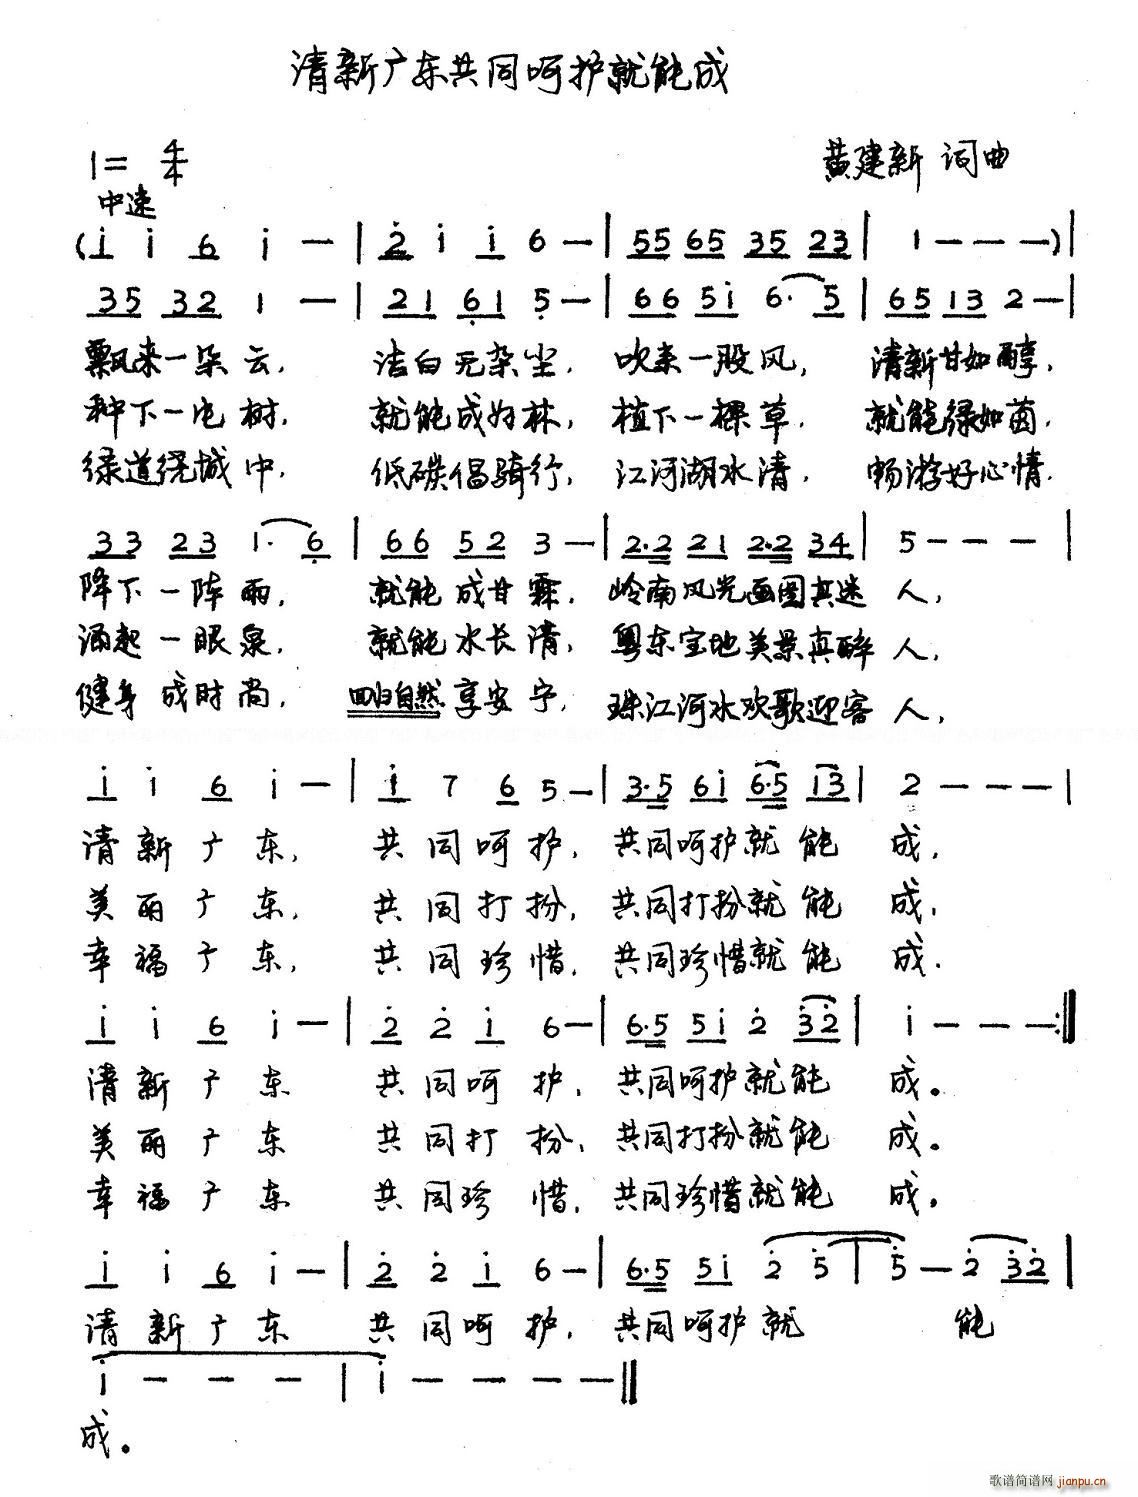 清新广东共同呵护就能成
1= 4/4
黄建新 词曲
中速
(i i 6 i — | 2 i i 6 — | 55 65 35 23 | 1 — — — ) |
35 32 1 — | 21 61 5 — | 66 5i 6· 5 | 65 13 2 — |
飘来一朵云, 洁白无杂尘. 吹来一股风, 清新甘如醇,
种下一片树, 就能成好林, 植下一棵草. 就能绿如茵.
绿道绕城中, 低碳倡骑行, 江河湖水清, 畅游好心情.
33 23 1· 6 | 66 52 3 — | 2·2 21 2·2 34 | 5 — — — |
降下一阵雨, 就能成甘霖. 岭南风光画图真迷人,
涌起一眼泉, 就能水长清, 粤东宝地美景真醉人,
健身成时尚, 回归自然享安宁, 珠江河水欢歌迎客人,
i i 6 i — | i 7 6 5 — | 3·5 6i 6·5 13 | 2 — — — |
清新广东, 共同呵护, 共同呵护就能成,
美丽广东, 共同打扮, 共同打扮就能成,
幸福广东, 共同珍惜, 共同珍惜就能成.
i i 6 i — | 2 2 i 6 — | 6·5 5i 2 32 | i — — — :||
清新广东 共同呵护, 共同呵护就能成。
美丽广东 共同打扮, 共同打扮就能成。
幸福广东 共同珍惜, 共同珍惜就能成。
i i 6 i — | 2 2 i 6 — | 6·5 5i 2 5 | 5 — 2 32 |
清新广东 共同呵护, 共同呵护就能
i — — — | i — — — ||
成。
歌谱简谱网 jianpu.cn